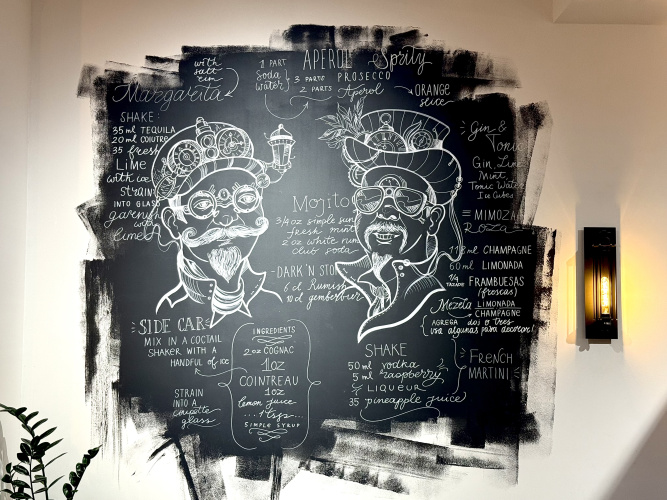 with
salt
rim
Margarita
SHAKE:
35 ml TEQUILA
20 ml COIUTRE
35 fresh
LIME
with ice
strain
INTO GLASS
garnish
with
limes
1 PART
Soda
water
APEROL Spritz
3 PARTS PROSECCO
2 PARTS Aperol
ORANGE
slice
Gin &
Tonic
Gin, Lime
Mint,
Tonic Water
Ice Cubes
Mojito
3/4 oz simple
fresh mint
2 oz white rum
club soda
DARK'N STO
6 cl Rum
10 cl gember
MIMOZA
Roza
ml CHAMPAGNE
60 ml LIMONADA
1/4 TAZADE FRAMBUESAS
(frescas)
Mezcla LIMONADA
CHAMPAGNE
AGREGA dos o tres
usa algunas para decorar!
SIDE CAR
MIX IN A COCTAIL
SHAKER WITH A
HANDFUL of ice
STRAIN
INTO A
coupette
glass
INGREDIENTS
2 oz COGNAC
1 oz
COINTREAU
1 oz
lemon juice
...1 tsps...
SIMPLE SYRUP
SHAKE
50 ml vodka
5 ml raspberry
LIQUEUR
35 pineapple juice
FRENCH
MARTINI